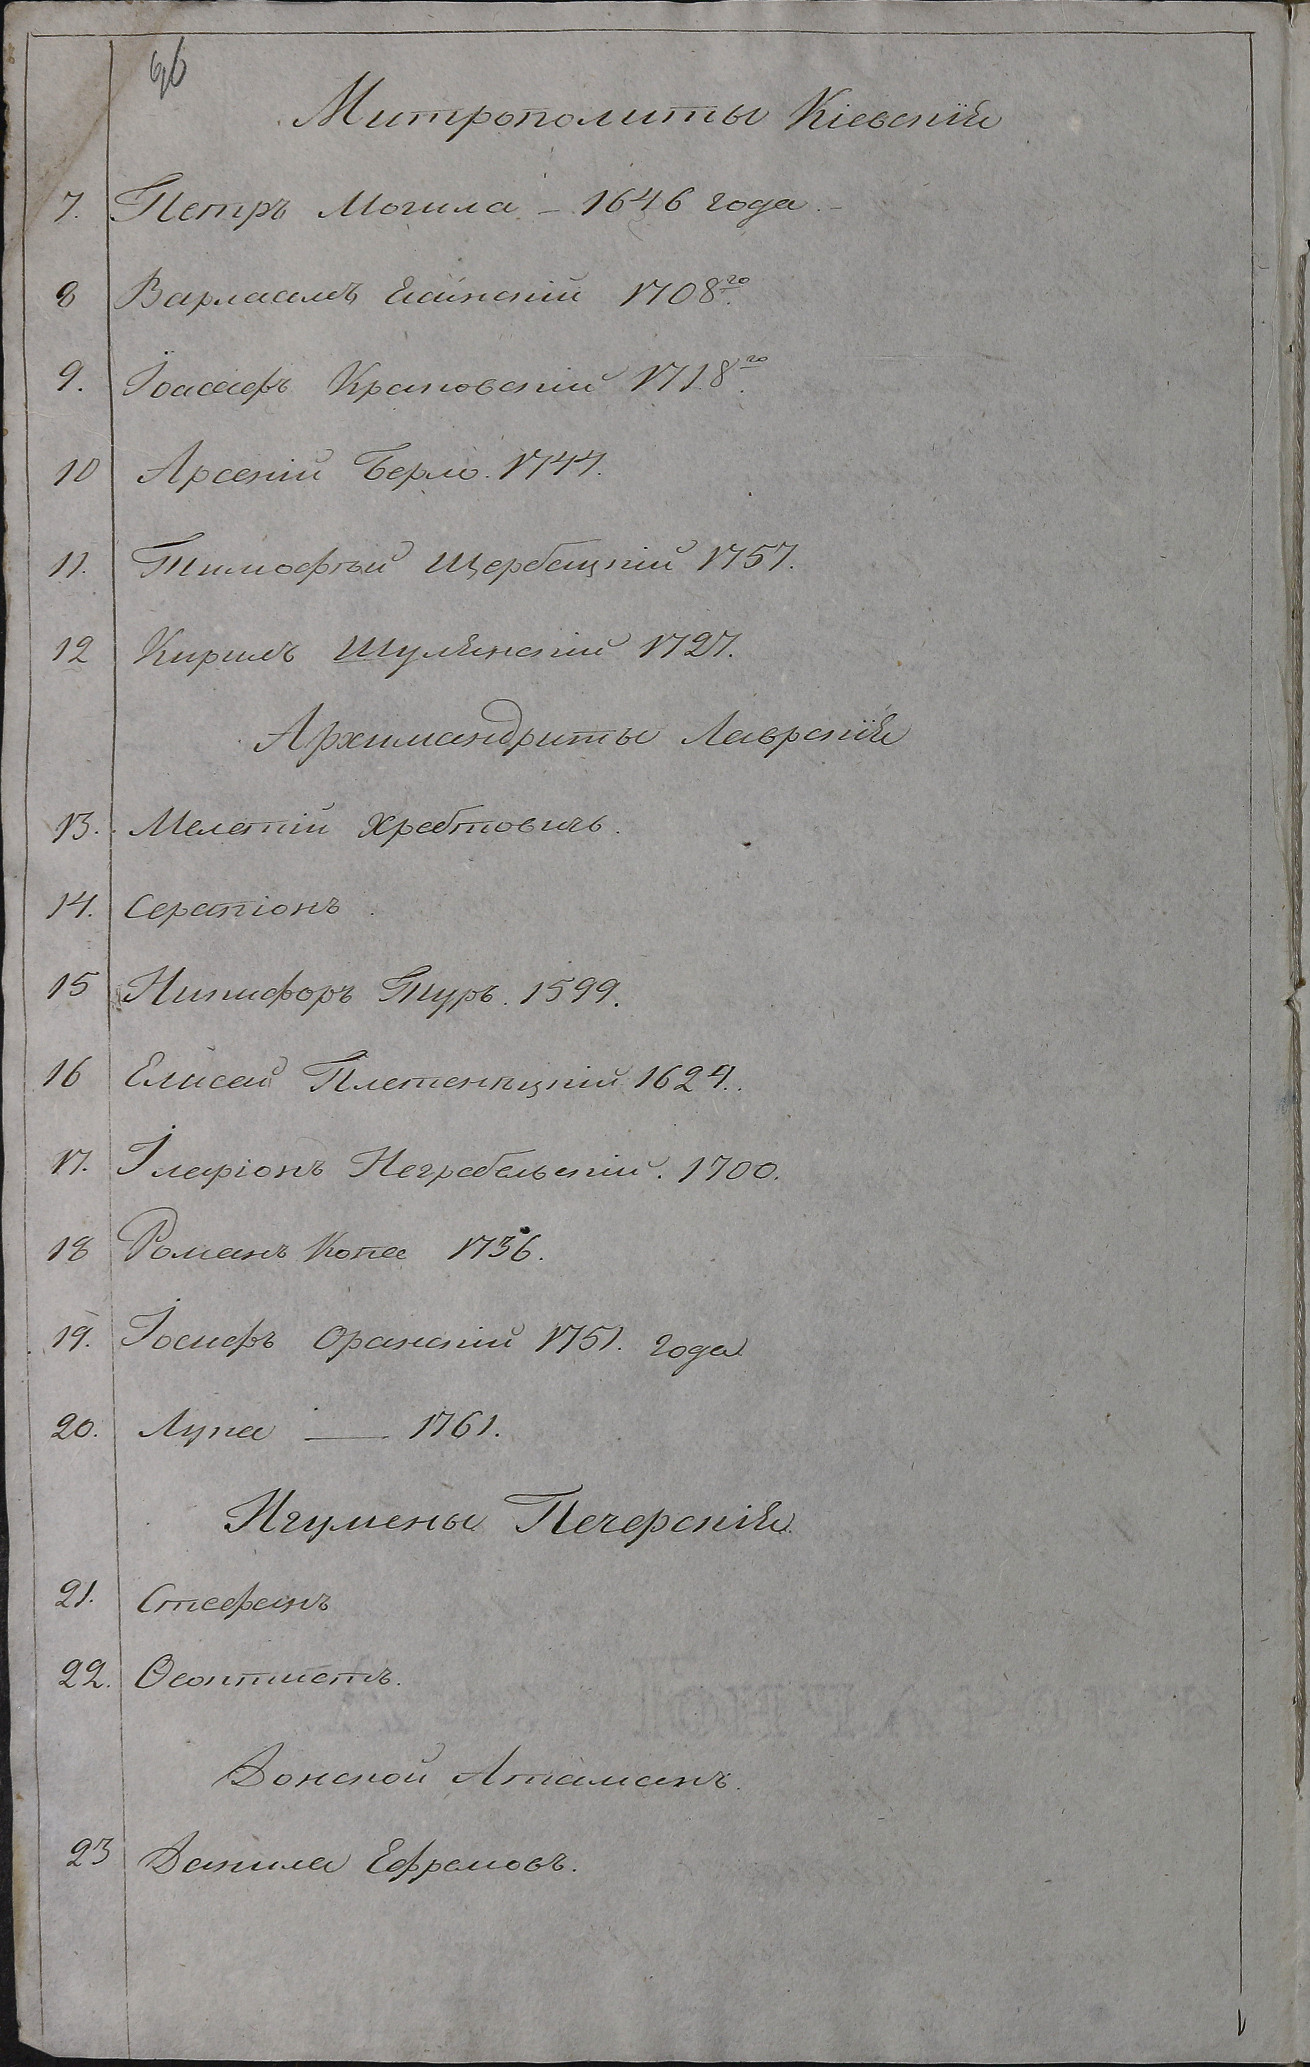 96
Митрополиты Кіевскіе
7. Петръ Могила – 1646 года. –
8 Варлаамъ Ясинскій 1708го.
9. Іоасафъ Кроковскій 1718го.
10 Арсеній Берло. 1744.
11. Тимофѣй Щербацкій 1757.
12 Кирилъ Шумлянскій 1727.
Архимандриты Лаврскіе
13. Мелетій Хребтовичь.
14. Серапіонъ.
15 Никифоръ Туръ. 1599.
16 Елисей Плетенѣцкій 1624.
17. Іларіонъ Негребельскій. 1700.
18 Романъ Копа 1736.
19. Іосифъ Оранскій 1751. года
20. Лука — 1761.
Игумены Печерскіе.
21. Стефанъ
22. Ѳеоктистъ.
Донской Атаманъ.
23 Данила Ефремовъ.